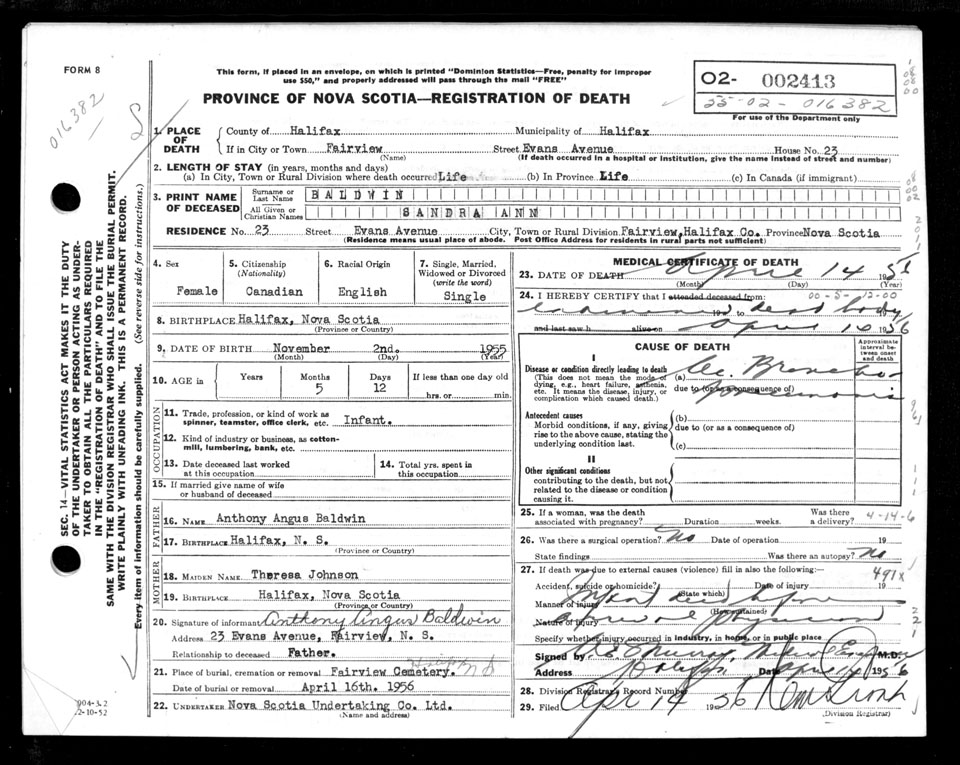 FORM 8
This form, if placed in an envelope, on which is printed "Dominion Statistics—Free, penalty for improper
use $50," and properly addressed will pass through the mail "FREE"
PROVINCE OF NOVA SCOTIA—REGISTRATION OF DEATH
02- 002413
55-02-016382
For use of the Department only
016382
SEC. 14—VITAL STATISTICS ACT MAKES IT THE DUTY
OF THE UNDERTAKER OR PERSON ACTING AS UNDER-
TAKER TO OBTAIN ALL THE PARTICULARS REQUIRED
IN THE "REGISTRATION OF DEATH" AND TO FILE THE
SAME WITH THE DIVISION REGISTRAR WHO SHALL ISSUE THE BURIAL PERMIT.
WRITE PLAINLY WITH UNFADING INK. THIS IS A PERMANENT RECORD.
Every item of information should be carefully supplied. (See reverse side for instructions.)
1. PLACE OF DEATH
County of Halifax Municipality of Halifax
If in City or Town Fairview Street Evans Avenue House No. 23
(Name) (If death occurred in a hospital or institution, give the name instead of street and number)
2. LENGTH OF STAY (in years, months and days)
(a) In City, Town or Rural Division where death occurred Life (b) In Province Life (c) In Canada (if immigrant)
3. PRINT NAME OF DECEASED
Surname or Last Name BALDWIN
All Given or Christian Names SANDRA ANN
RESIDENCE No. 23 Street Evans Avenue City, Town or Rural Division Fairview, Halifax Co. Province Nova Scotia
(Residence means usual place of abode. Post Office Address for residents in rural parts not sufficient)
4. Sex
Female
5. Citizenship (Nationality)
Canadian
6. Racial Origin
English
7. Single, Married, Widowed or Divorced (write the word)
Single
8. BIRTHPLACE Halifax, Nova Scotia
(Province or Country)
9. DATE OF BIRTH November 2nd. 1955
(Month) (Day) (Year)
10. AGE in Years Months Days If less than one day old
5 12 hrs. or min.
OCCUPATION
11. Trade, profession, or kind of work as
spinner, teamster, office clerk, etc. Infant.
12. Kind of industry or business, as cotton-
mill, lumbering, bank, etc.
13. Date deceased last worked
at this occupation
14. Total yrs. spent in
this occupation
15. If married give name of wife
or husband of deceased
FATHER
16. NAME Anthony Angus Baldwin
17. BIRTHPLACE Halifax, N. S.
(Province or Country)
MOTHER
18. MAIDEN NAME Theresa Johnson
19. BIRTHPLACE Halifax, Nova Scotia
(Province or Country)
20. Signature of informant Anthony Angus Baldwin
Address 23 Evans Avenue, Fairview, N. S.
Relationship to deceased Father.
21. Place of burial, cremation or removal Fairview Cemetery. Halifax NS
Date of burial or removal April 16th. 1956
22. UNDERTAKER Nova Scotia Undertaking Co. Ltd.
(Name and address)
MEDICAL CERTIFICATE OF DEATH
23. DATE OF DEATH April 14 195
(Month) (Day) (Year)
24. I HEREBY CERTIFY that I attended deceased from:
19 to dead body
and last saw h alive on April 1956
CAUSE OF DEATH
Approximate interval between onset and death
I
Disease or condition directly leading to death
(This does not mean the mode of
dying, e.g., heart failure, asthenia,
etc. It means the disease, injury, or
complication which caused death.)
(a) Ac. Broncho
due to (or as a consequence of) pneumonia
Antecedent causes
Morbid conditions, if any, giving
rise to the above cause, stating the
underlying condition last.
(b)
due to (or as a consequence of)
(c)
II
Other significant conditions
contributing to the death, but not
related to the disease or condition
causing it.
25. If a woman, was the death
associated with pregnancy? Duration weeks. Was there a delivery?
4-14-6
26. Was there a surgical operation? No Date of operation 19
State findings Was there an autopsy? No
27. If death was due to external causes (violence) fill in also the following:—
491x
Accident, suicide or homicide? Date of injury 19
(State which)
Manner of injury Infant died before
(How sustained)
Nature of injury arrival of physician
Specify whether injury occurred in industry, in home, or in public place
Signed by Murray, M.D.
Address Halifax Date April 1956
28. Division Registrar's Record Number
29. Filed Apr 14 1956
(Division Registrar)